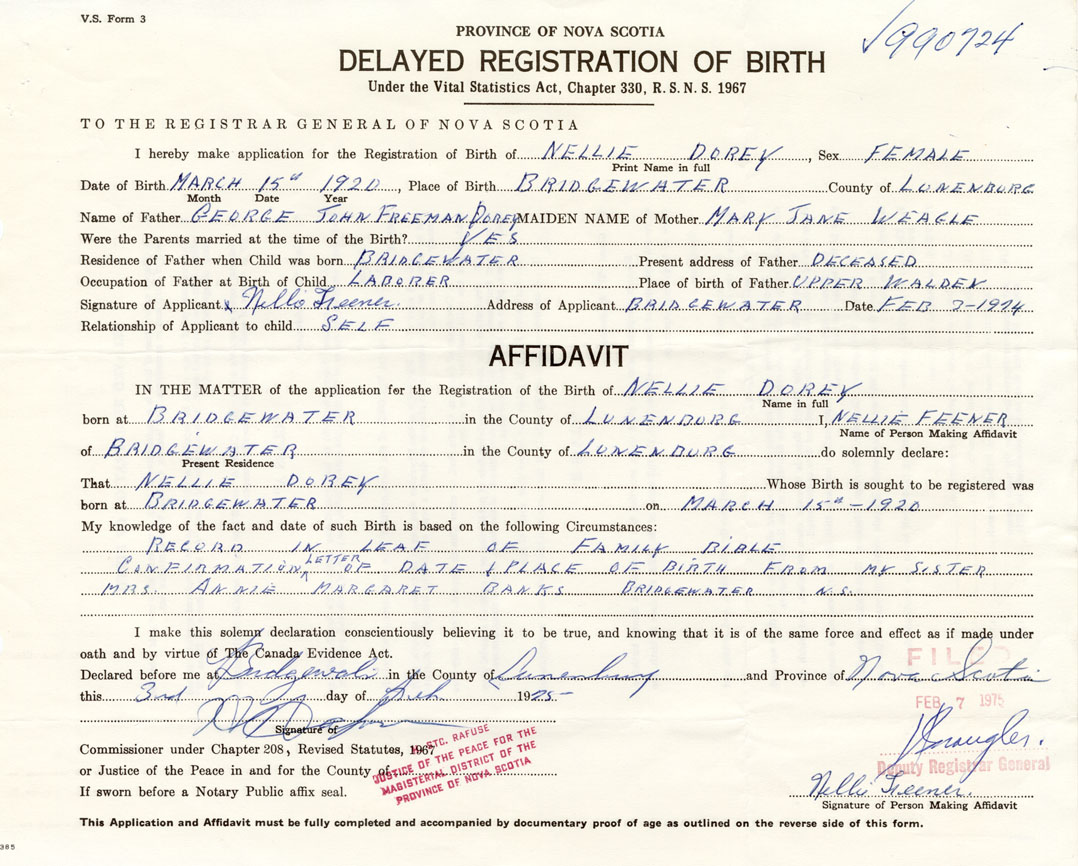 V.S. Form 3
PROVINCE OF NOVA SCOTIA
√990724
DELAYED REGISTRATION OF BIRTH
Under the Vital Statistics Act, Chapter 330, R.S.N.S. 1967
TO THE REGISTRAR GENERAL OF NOVA SCOTIA
I hereby make application for the Registration of Birth of NELLIE DOREY, Sex FEMALE
Print Name in full
Date of Birth MARCH 15th 1920, Place of Birth BRIDGEWATER County of LUNENBURG
Month Date Year
Name of Father GEORGE JOHN FREEMAN DOREY MAIDEN NAME of Mother MARY JANE WEAGLE
Were the Parents married at the time of the Birth? YES
Residence of Father when Child was born BRIDGEWATER Present address of Father DECEASED
Occupation of Father at Birth of Child LABORER Place of birth of Father UPPER WALDEN
Signature of Applicant x Nellie Feener. Address of Applicant BRIDGEWATER Date FEB 3-1974
Relationship of Applicant to child SELF
AFFIDAVIT
IN THE MATTER of the application for the Registration of the Birth of NELLIE DOREY
Name in full
born at BRIDGEWATER in the County of LUNENBURG I, NELLIE FEENER
Name of Person Making Affidavit
of BRIDGEWATER in the County of LUNENBURG do solemnly declare:
Present Residence
That NELLIE DOREY Whose Birth is sought to be registered was
born at BRIDGEWATER on MARCH 15th-1920
My knowledge of the fact and date of such Birth is based on the following Circumstances:
RECORD IN LEAF OF FAMILY BIBLE
CONFIRMATION LETTER OF DATE & PLACE OF BIRTH FROM MY SISTER
MRS. ANNIE MARGARET BANKS BRIDGEWATER N.S.
I make this solemn declaration conscientiously believing it to be true, and knowing that it is of the same force and effect as if made under
oath and by virtue of The Canada Evidence Act.
FILED
Declared before me at Bridgewater in the County of Lunenburg and Province of Nova Scotia
this 3rd day of Feb 1975
FEB 7 1975
Signature of
Commissioner under Chapter 208, Revised Statutes, 1967
or Justice of the Peace in and for the County of
If sworn before a Notary Public affix seal.
STC. RAFUSE
JUSTICE OF THE PEACE FOR THE
MAGISTERIAL DISTRICT OF THE
PROVINCE OF NOVA SCOTIA
Deputy Registrar General
Nellie Feener.
Signature of Person Making Affidavit
This Application and Affidavit must be fully completed and accompanied by documentary proof of age as outlined on the reverse side of this form.
385